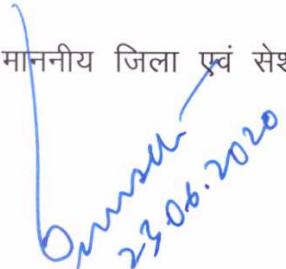 माननीय जिला एवं सेश
23.06.2020